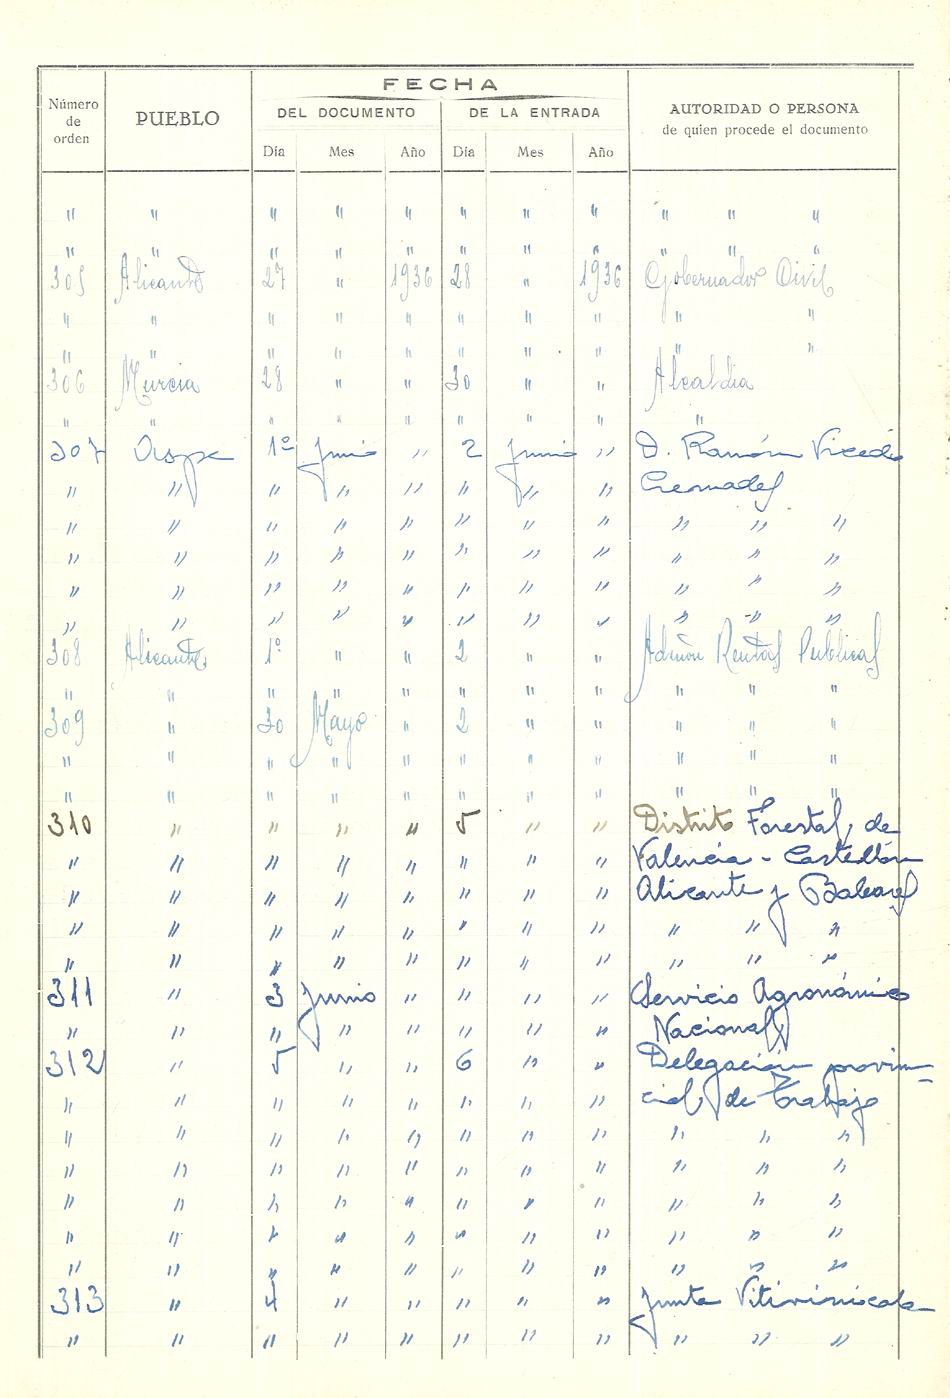 FECHA
Número de orden PUEBLO DEL DOCUMENTO DE LA ENTRADA AUTORIDAD O PERSONA
de quien procede el documento
Día Mes Año Día Mes Año
" " " " " " " " " " "
" " " " " " " " " " "
305 Alicante 27 " 1936 28 " 1936 Gobernador Civil
" " " " " " " " " "
" " " " " " " " " "
306 Murcia 28 " " 30 " " Alcaldia
" " " " " " " " "
307 Aspe 1º Junio " 2 Junio " D. Ramón Vicedo
" " " " " " " " Cremades
" " " " " " " " " " "
" " " " " " " " " " "
" " " " " " " " " " "
" " " " " " " " " " "
308 Alicante 1º " " 2 " " Admón Rentas Publicas
" " " " " " " " " " "
309 " 30 Mayo " 2 " " " " "
" " " " " " " " " " "
" " " " " " " " " " "
310 " " " " 5 " " Distrito Forestal, de
" " " " " " " " Valencia - Castellón
" " " " " " " " Alicante y Baleares
" " " " " " " " " " "
" " " " " " " " " " "
311 " 3 Junio " " " " Servicio Agronómico
" " " " " " " " Nacional
312 " 5 " " 6 " " Delegación provin-
" " " " " " " " cial de Trabajo
" " " " " " " " " " "
" " " " " " " " " " "
" " " " " " " " " " "
" " " " " " " " " " "
" " " " " " " " " " "
313 " 4 " " " " " Junta Vitivinicola
" " " " " " " " " " "